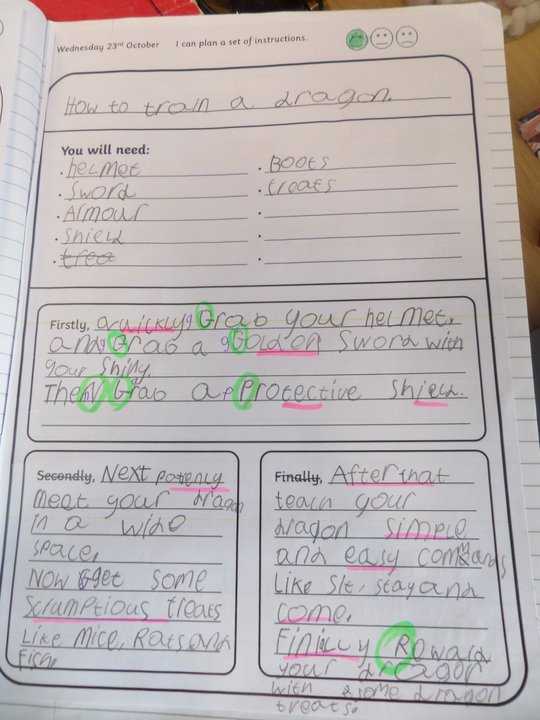 Wednesday 23rd October I can plan a set of instructions.
How to train a dragon.
You will need:
. helmet
. Sword
. Armour
. Shield
. trea
. Boots
. treats
.
.
.
Firstly, quickly Grab your helmet,
and Grab a Golden Sword with
your Shiny.
Then Grab a Protective Shield.
Secondly, Next patenly
meet your dragon
in a wide
space,
Now get some
Scrumptious treats
Like Mice, Rats and
Fish.
Finally, After that
teach your
dragon simple
and easy commands
Like Sit, stay and
come.
Finilly Reward
your dragon
with some dragon
treats.